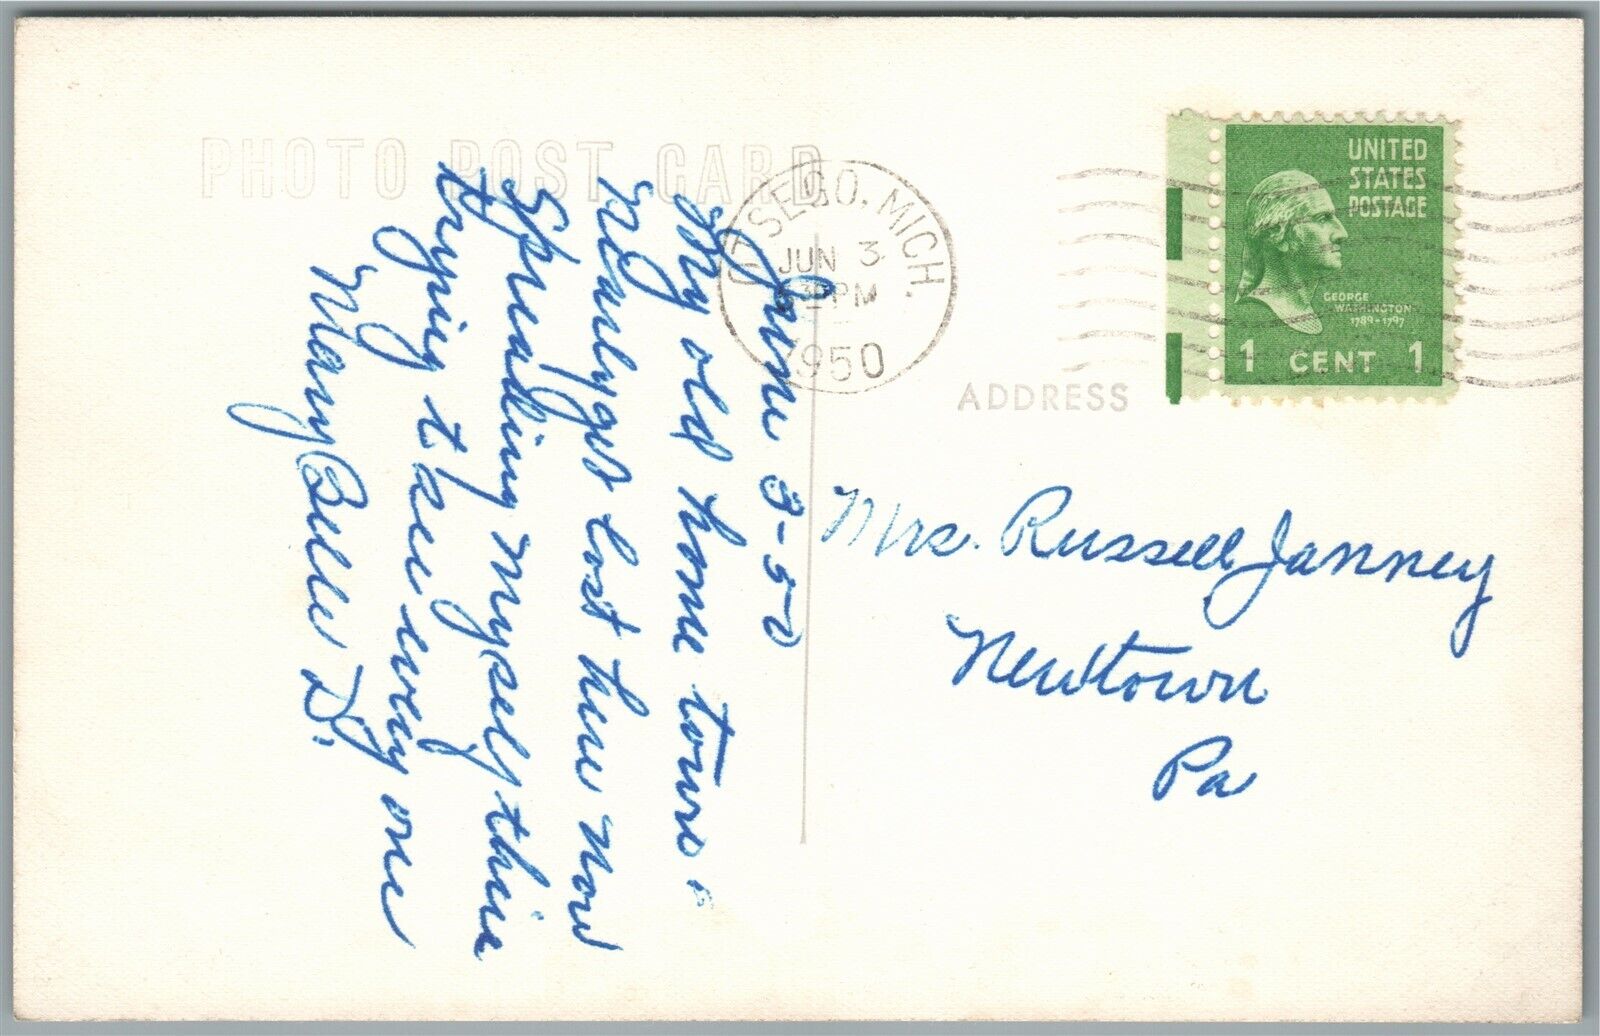 PHOTO POST CARD
OTSEGO, MICH.
JUN 3
PM
1950
UNITED
STATES
POSTAGE
GEORGE
WASHINGTON
1789-1797
1 CENT 1
ADDRESS
June 3-50
My old home town.
Nearly get lost here now
Spreading myself thin
trying t see every one
Mary Belle D.
Mrs. Russell Janney
Newtown
Pa